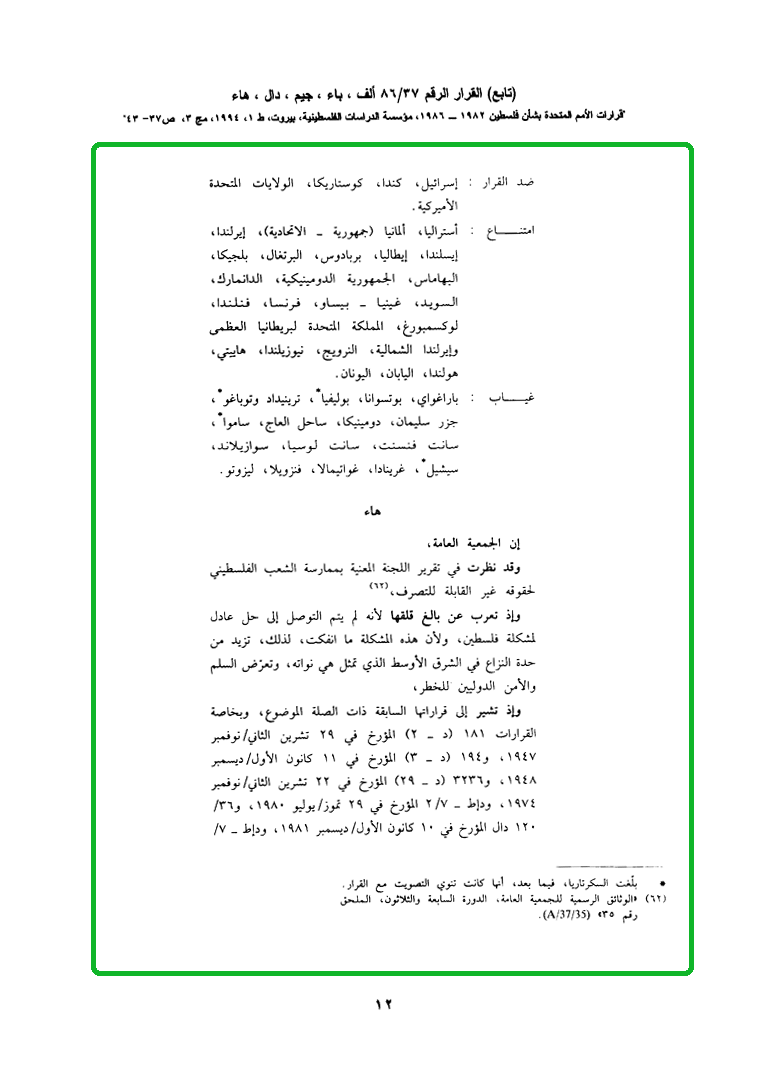 (تابع) القرار الرقم ٨٦/٣٧ ألف ، باء ، جيم ، دال ، هاء
"قرارات الأمم المتحدة بشأن فلسطين ١٩٨٢ – ١٩٨٦، مؤسسة الدراسات الفلسطينية، بيروت، ط ١، ١٩٩٤، مج ٣، ص٣٧- ٤٣"
ضد القرار : إسرائيل، كندا، كوستاريكا، الولايات المتحدة
الأميركية.
امتنــــاع : أستراليا، ألمانيا (جمهورية ـ الاتحادية)، إيرلندا،
إيسلندا، إيطاليا، بربادوس، البرتغال، بلجيكا،
البهاماس، الجمهورية الدومينيكية، الدانمارك،
السويد، غينيا ـ بيساو، فرنسا، فنلندا،
لوكسمبورغ، المملكة المتحدة لبريطانيا العظمى
وإيرلندا الشمالية، النرويج، نيوزيلندا، هاييتي،
هولندا، اليابان، اليونان.
غيــــاب : باراغواي، بوتسوانا، بوليفيا*، ترينيداد وتوباغو*،
جزر سليمان، دومينيكا، ساحل العاج، ساموا*،
سانت فنسنت، سانت لوسيا، سوازيلاند،
سيشيل*، غرينادا، غواتيمالا، فنزويلا، ليزوتو.
هاء
إن الجمعية العامة،
وقد نظرت في تقرير اللجنة المعنية بممارسة الشعب الفلسطيني
لحقوقه غير القابلة للتصرف،(٦٢)
وإذ تعرب عن بالغ قلقها لأنه لم يتم التوصل إلى حل عادل
لمشكلة فلسطين، ولأن هذه المشكلة ما انفكت، لذلك، تزيد من
حدة النزاع في الشرق الأوسط الذي تمثل هي نواته، وتعرّض السلم
والأمن الدوليين للخطر،
وإذ تشير إلى قراراتها السابقة ذات الصلة الموضوع، وبخاصة
القرارات ١٨١ (د ـ ٢) المؤرخ في ٢٩ تشرين الثاني/نوفمبر
١٩٤٧، و١٩٤ (د ـ ٣) المؤرخ في ١١ كانون الأول/ديسمبر
١٩٤٨، و٣٢٣٦ (د ـ ٢٩) المؤرخ في ٢٢ تشرين الثاني/نوفمبر
١٩٧٤، ودإط ـ ٢/٧ المؤرخ في ٢٩ تموز/يوليو ١٩٨٠، و٣٦/
١٢٠ دال المؤرخ في ١٠ كانون الأول/ديسمبر ١٩٨١، ودإط ـ ٧/
• بلّغت السكرتاريا، فيما بعد، أنها كانت تنوي التصويت مع القرار.
(٦٢) «الوثائق الرسمية للجمعية العامة، الدورة السابعة والثلاثون، الملحق
رقم ٣٥» (A/37/35).
١٢